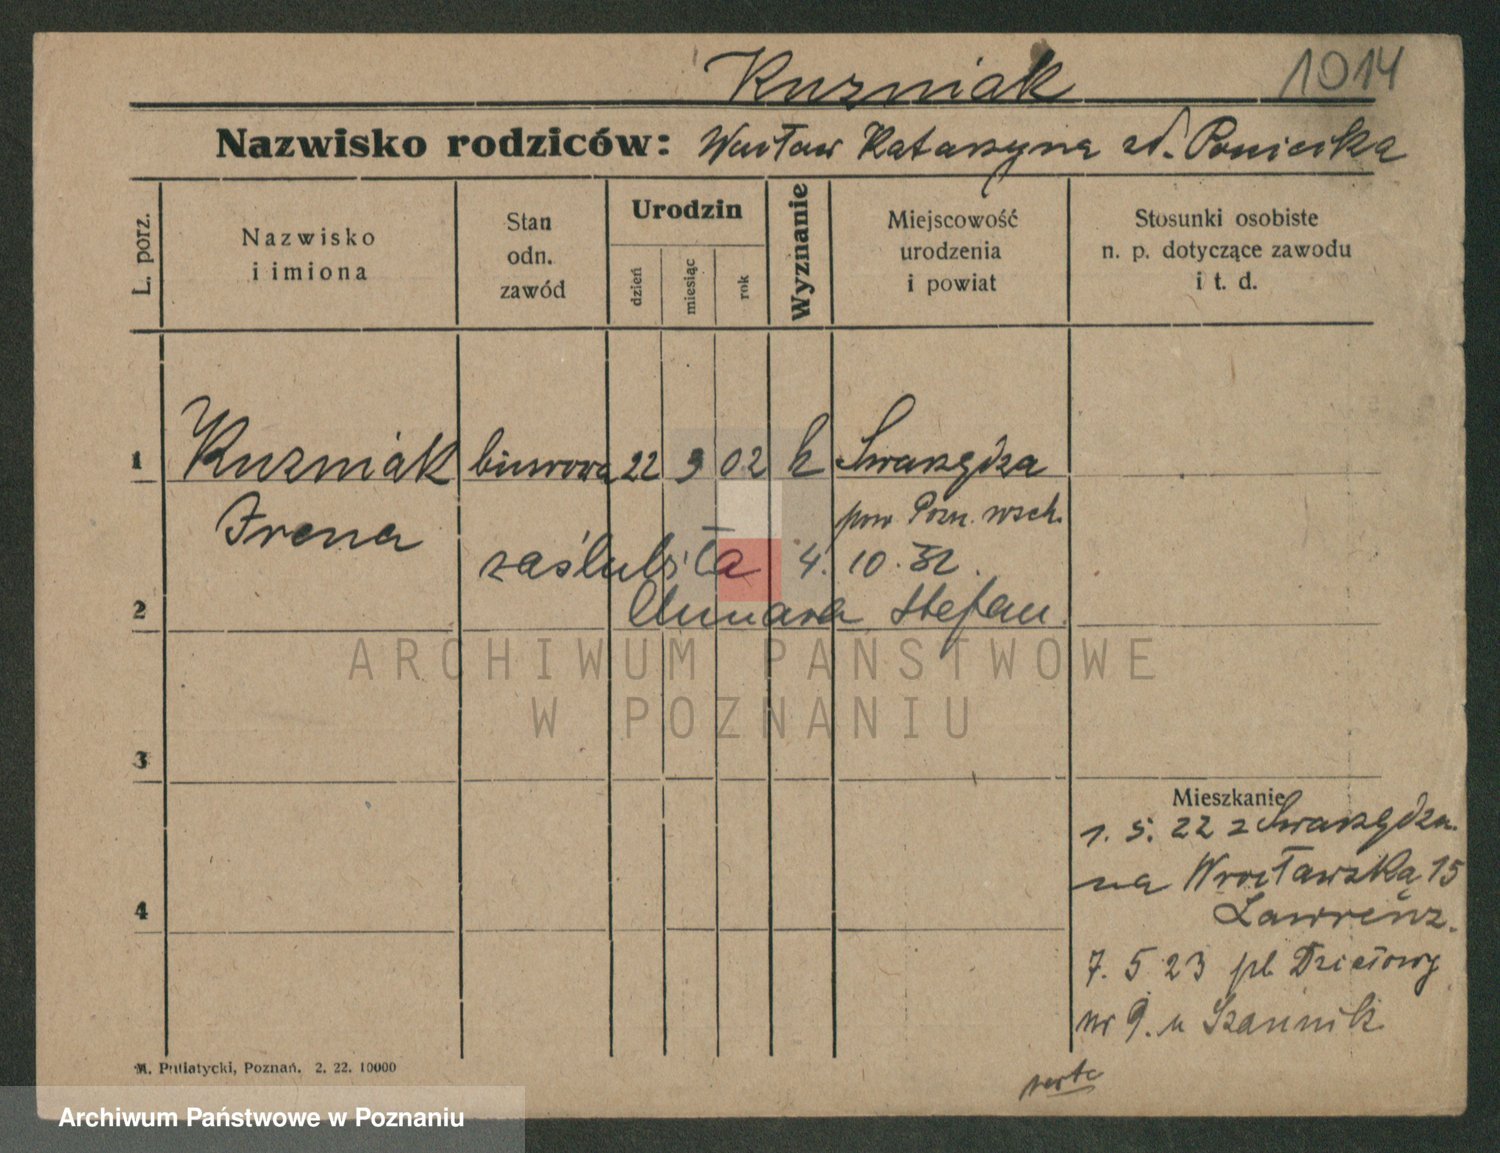 Kuzniak 1014
Nazwisko rodziców: Wacław Katarzyna zd. Ponicika
L. porz.
Nazwisko
i imiona
Stan
odn.
zawód
Urodzin
dzień
miesiąc
rok
Wyznanie
Miejscowość
urodzenia
i powiat
Stosunki osobiste
n. p. dotyczące zawodu
i t. d.
1 Kuzniak biurowa 22 9 02 k Swarzędza
Irena pow Pozn. wsch.
zaślubiła 4. 10. 32.
2 Stefan
3
Mieszkanie
1. 5. 22 z Swarzędza.
na Wrocławską 15
4
Lawrenz.
7. 5 23 pl. Działowy
nr 9. u
M. Putiatycki, Poznań. 2. 22. 10000
verte
ARCHIWUM PAŃSTWOWE
W POZNANIU
Archiwum Państwowe w Poznaniu